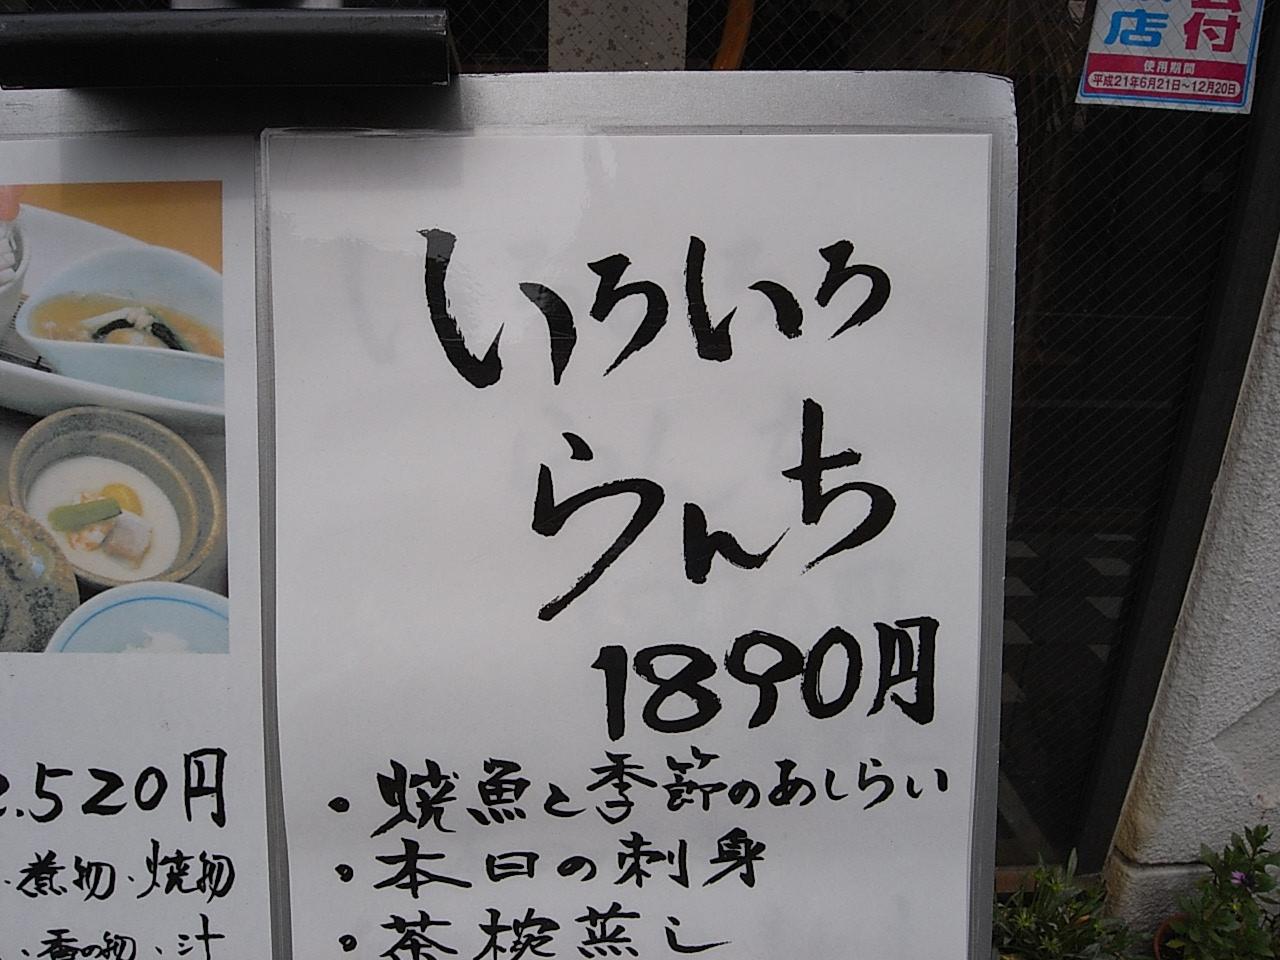 いろいろ
らんち
1890円
・焼魚と季節のあしらい
・本日の刺身
・茶椀蒸し
2.520円
・煮物・焼物
・香の物・汁
店 付
使用期間
平成21年6月21日～12月20日